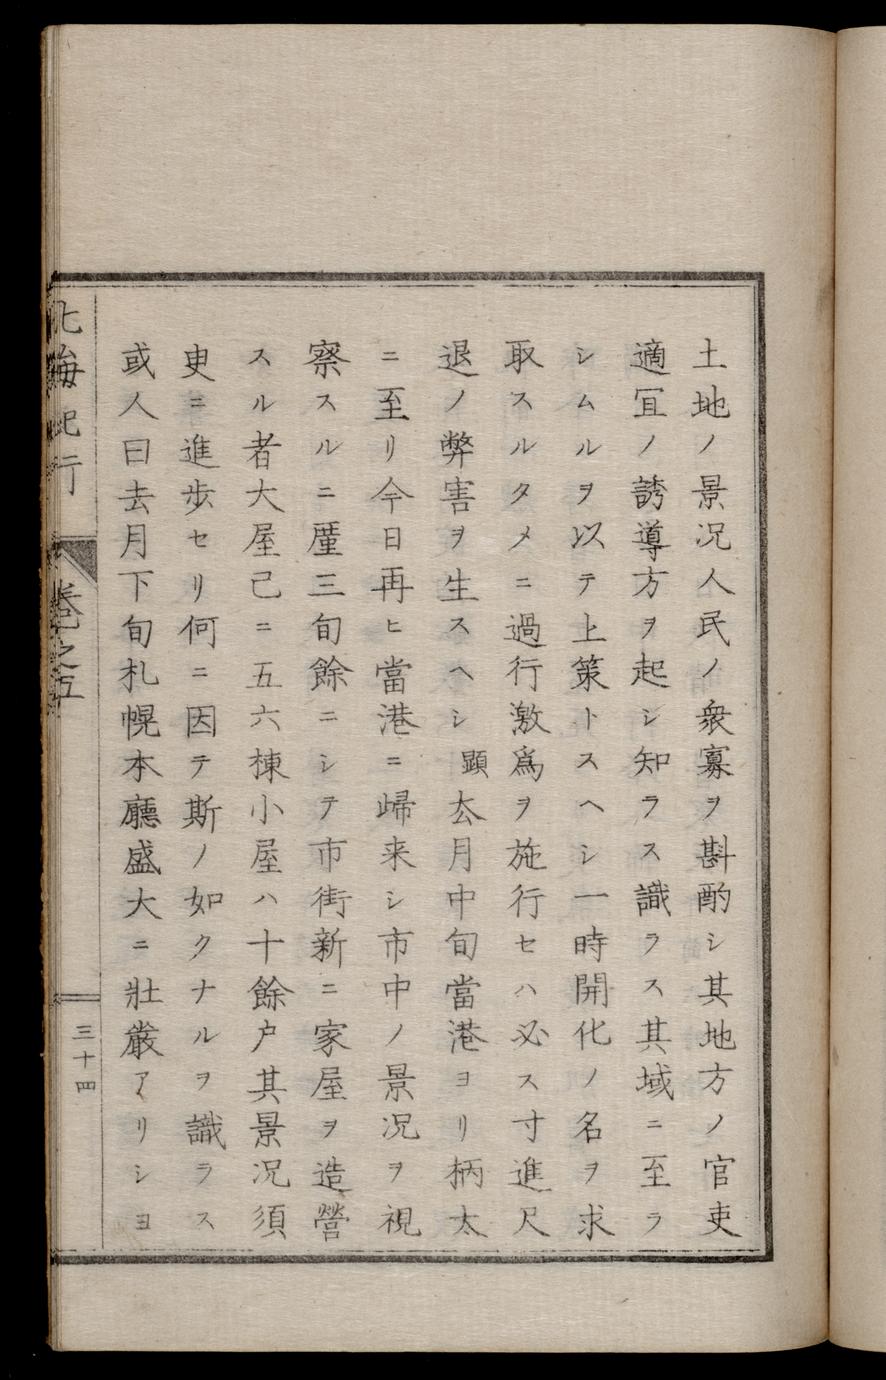 土地ノ景况人民ノ衆寡ヲ斟酌シ其地方ノ官吏
適冝ノ誘導方ヲ起シ知ラス識ラス其域ニ至ラ
シムルヲ以テ上策トスヘシ一時開化ノ名ヲ求
取スルタメニ過行激爲ヲ施行セハ必ス寸進尺
退ノ弊害ヲ生スヘシ顕厺月中旬當港ヨリ柄太
ニ至リ今日再ヒ當港ニ歸来シ市中ノ景况ヲ視
察スルニ厪三旬餘ニシテ市街新ニ家屋ヲ造營
スル者大屋己ニ五六棟小屋ハ十餘户其景况須
臾ニ進歩セリ何ニ因テ斯ノ如クナルヲ識ラス
或人曰去月下旬札幌本廳盛大ニ壯嚴アリシヨ
北海紀行
卷之五
三十四